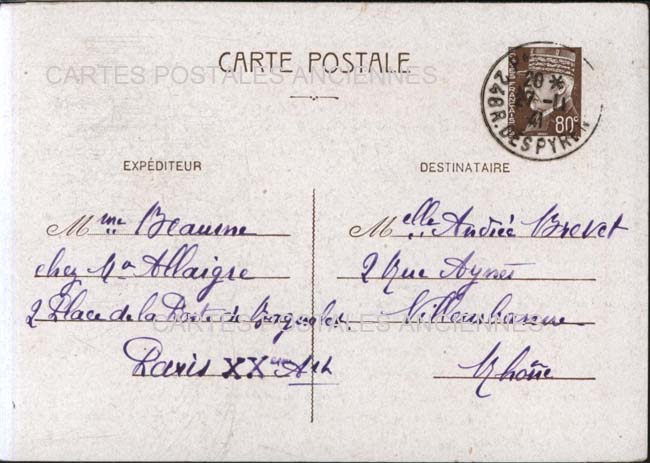 CARTE POSTALE
CARTES POSTALES ANCIENNES
20 *
27-11
41
24 BR. DES PYREN
80c
EXPÉDITEUR
Mme Beaune
chez Mr Allaigre
2 Place de la Porte de Bagnolet
Paris XXème Art
DESTINATAIRE
Melle Andrée Brevet
2 Rue Aynés
Villeurbanne
Rhône
CARTES POSTALES ANCIENNES